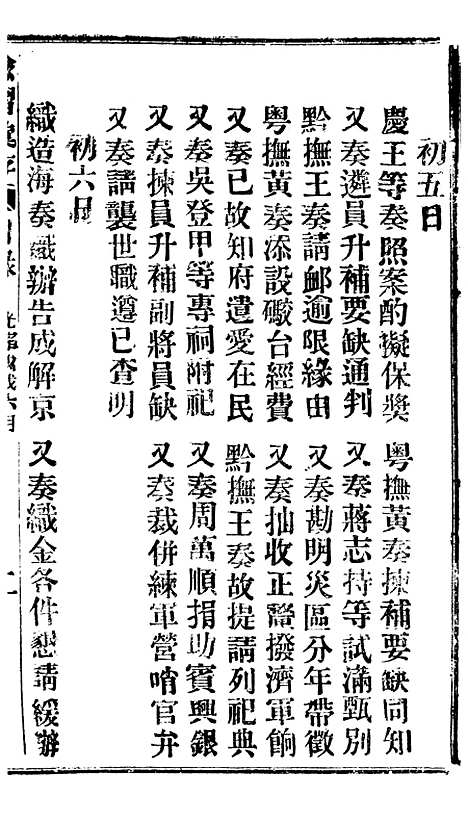 初五日
慶王等奏照案酌擬保獎
粵撫黃奏揀補要缺同知
又奏遴員升補要缺通判
又奏蔣志持等試滿甄別
黔撫王奏請卹逾限緣由
又奏勘明災區分年帶徵
粵撫黃奏添設礮台經費
又奏抽收正釐撥濟軍餉
又奏已故知府遺愛在民
黔撫王奏故提請列祀典
又奏吳登甲等專祠附祀
又奏周萬順捐助賓興銀
又奏揀員升補副將員缺
又奏裁併練軍營哨官弁
又奏請襲世職遵已查明
初六日
織造海奏織辦告成解京
又奏織金各件懇請緩辦